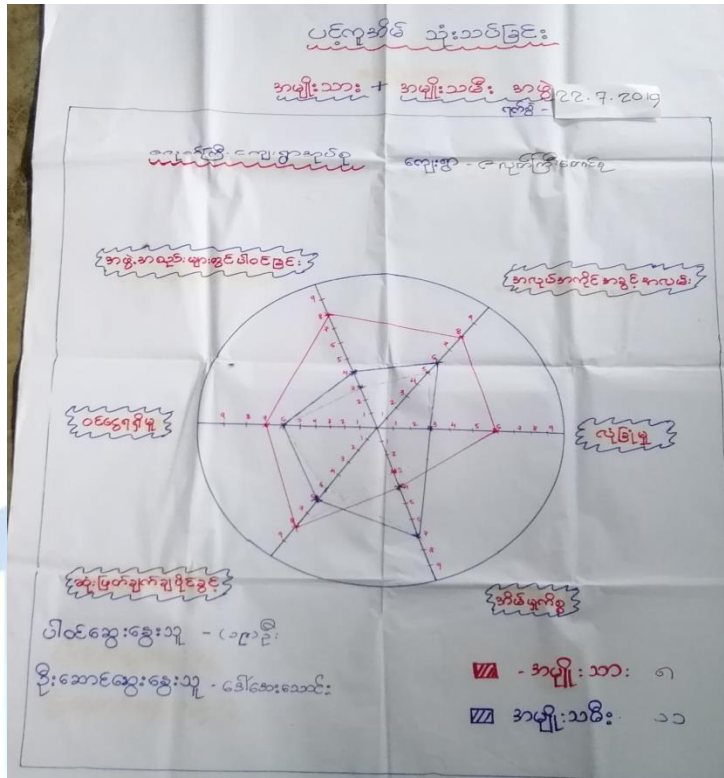 ပင့်ကူအိမ် သုံးသပ်ခြင်း
အမျိုးသား + အမျိုးသမီး အဖွဲ့
22.7.2019
ကျေးရွာအုပ်စု ကျေးရွာ -
အဖွဲ့အစည်းများတွင် ပါဝင်ခြင်း
အလုပ်အကိုင် အခွင့်အလမ်း
ဝင်ငွေရရှိမှု
လုံခြုံမှု
ဆုံးဖြတ်ချက်ချပိုင်ခွင့်
အိမ်မှုကိစ္စ
ပါဝင်ဆွေးနွေးသူ - (၁၉) ဦး
ဦးဆောင်ဆွေးနွေးသူ - ဒေါ်အေးသောင်း
- အမျိုးသား ၈
အမျိုးသမီး ၁၁